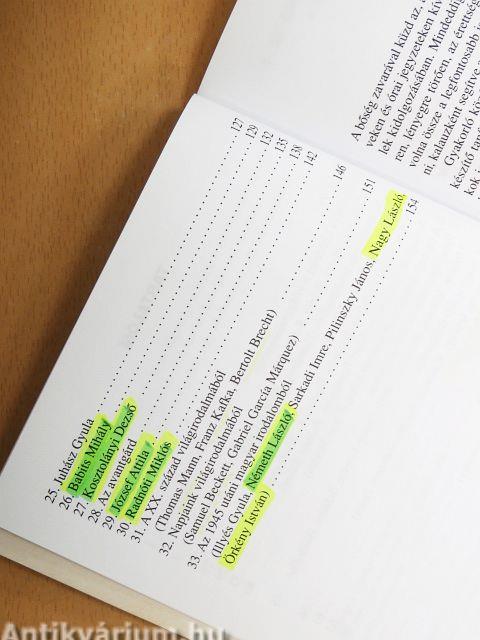 25. Juhász Gyula 127
26. Babits Mihály 129
27. Kosztolányi Dezső 132
28. Az avantgárd 135
29. József Attila 138
30. Radnóti Miklós 142
31. A XX. század világirodalmából
(Thomas Mann, Franz Kafka, Bertolt Brecht) 146
32. Napjaink világirodalmából
(Samuel Beckett, Gabriel García Márquez) 151
33. Az 1945 utáni magyar irodalomból
(Illyés Gyula, Németh László, Sarkadi Imre, Pilinszky János, Nagy László,
Örkény István) 154
A bőség zavarával küzd az,
veken és órai jegyzeteken
lek kidolgozásában.
ren, lényegre törően, az
volna össze a legfontosabb
ni, kalauzként segítve a
Gyakorló
készítő
Antikvárium.hu